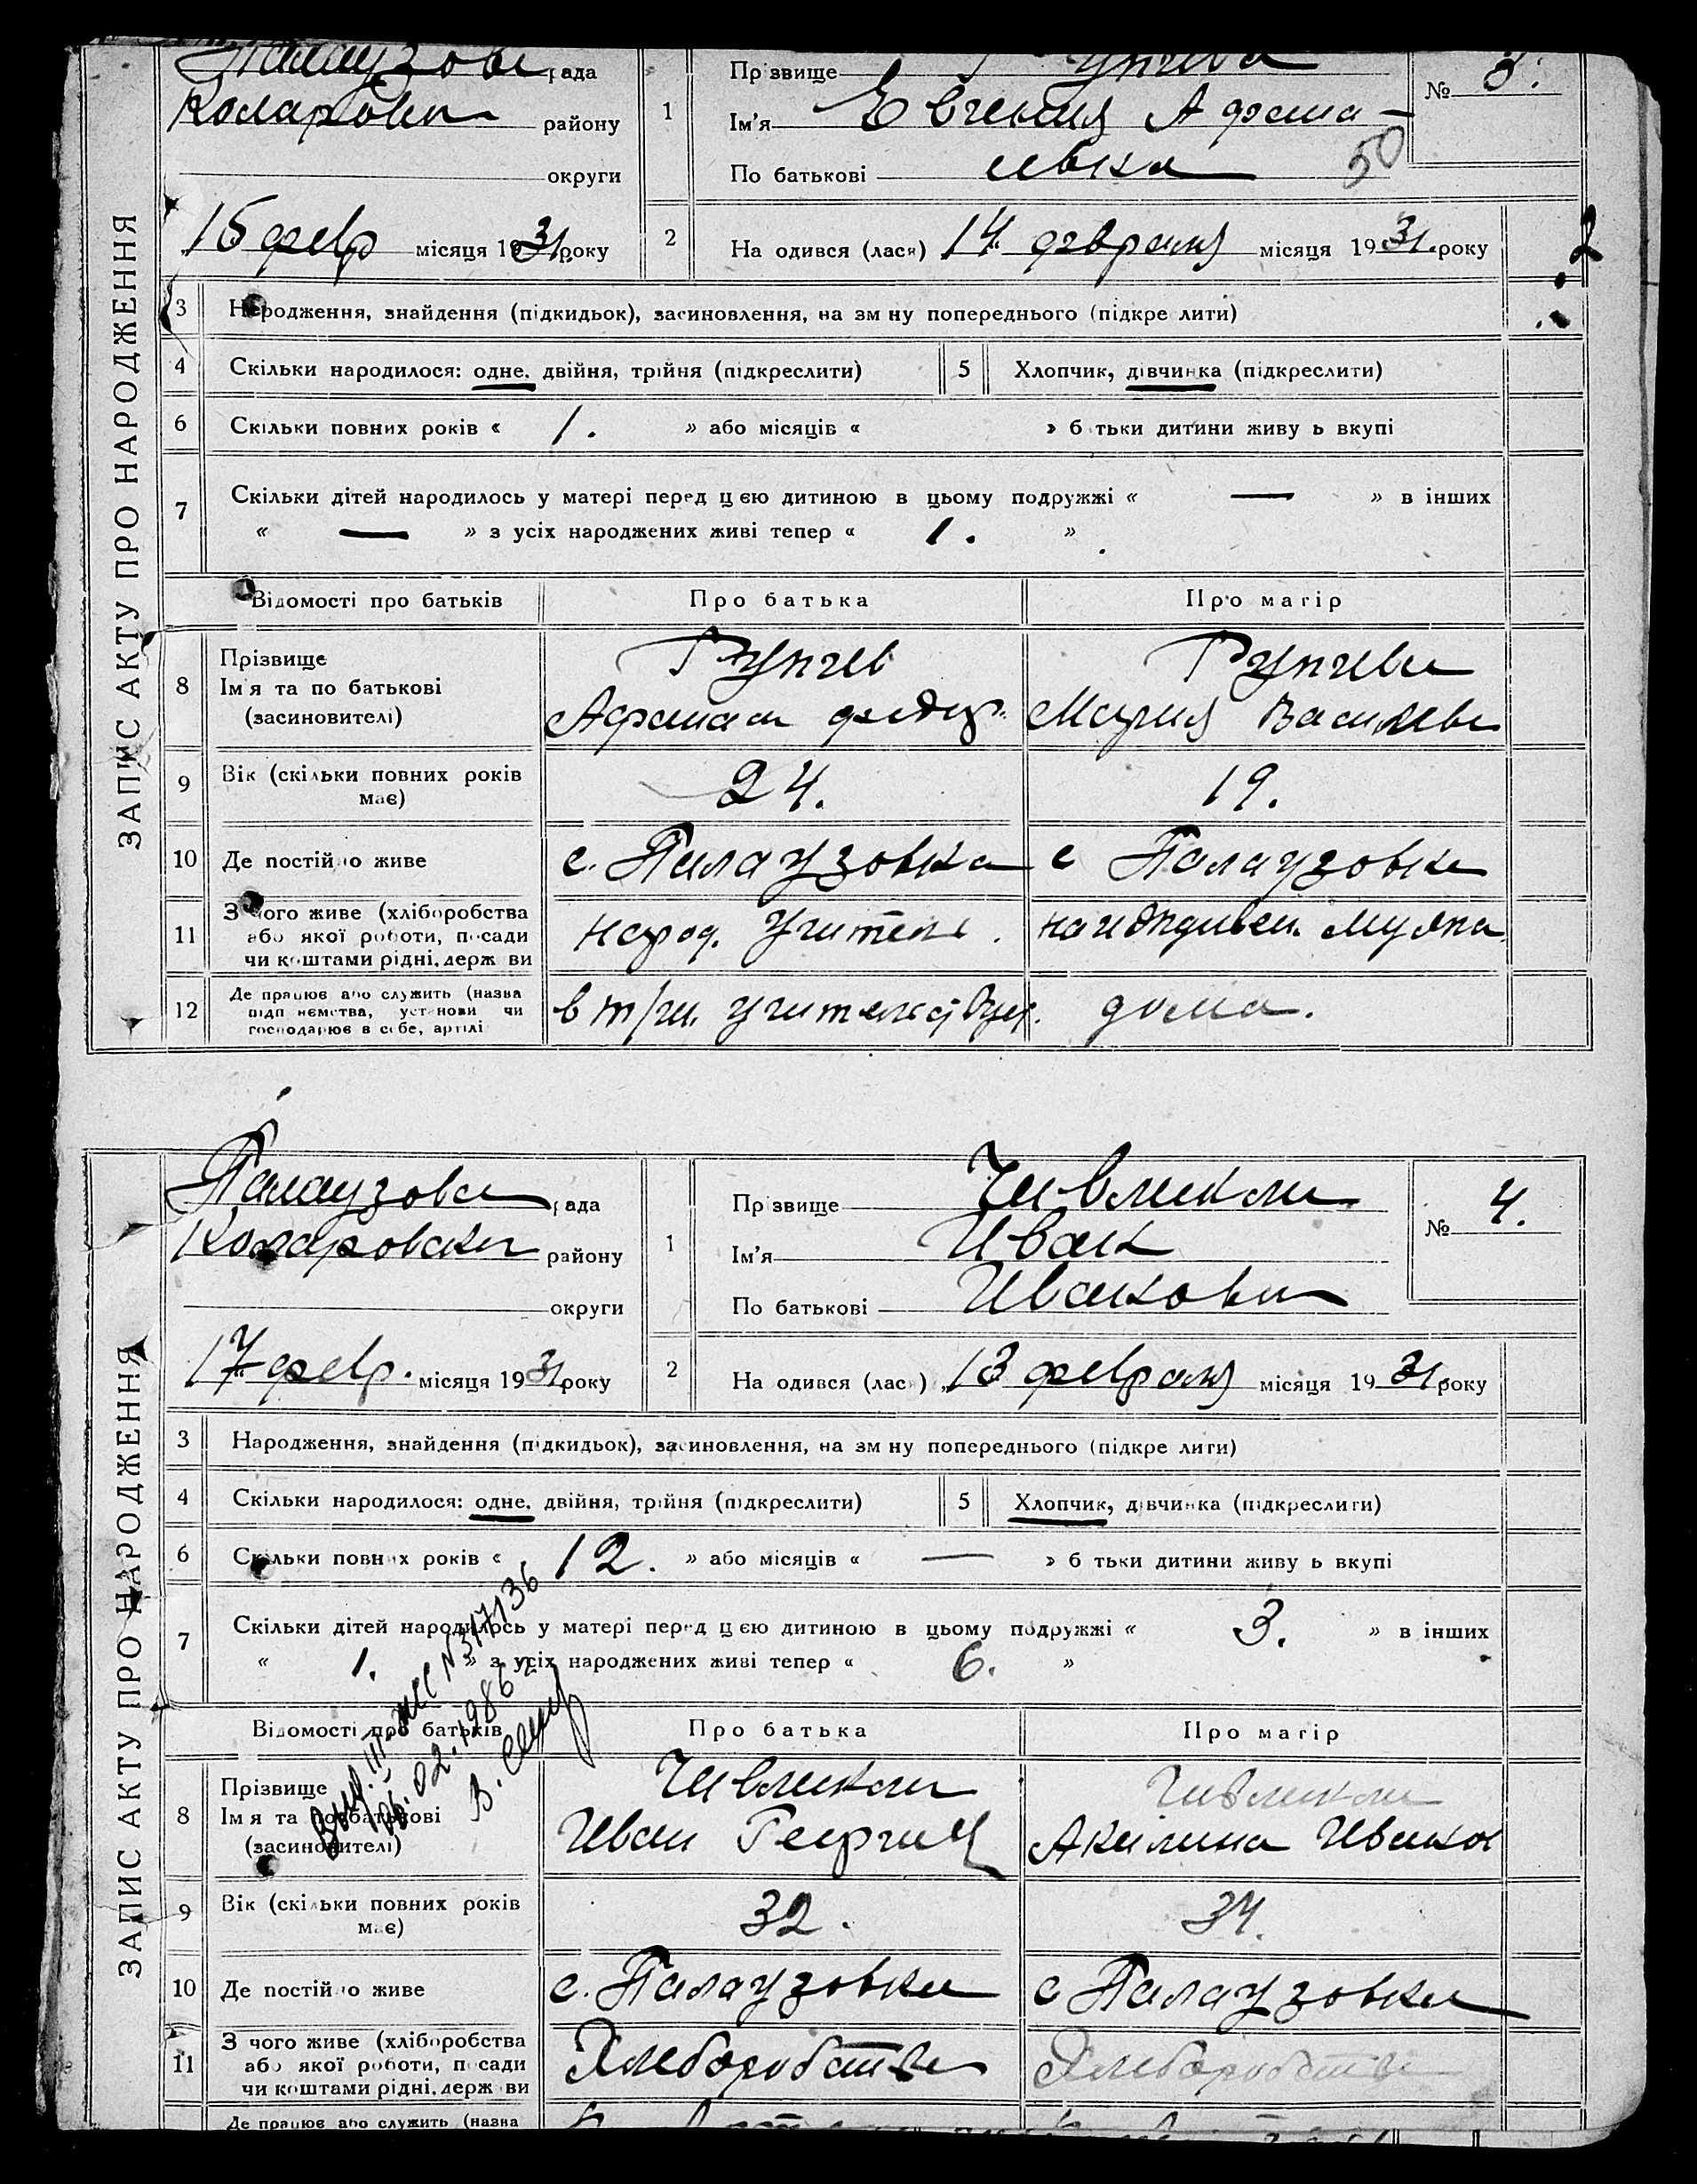 ЗАПИС АКТУ ПРО НАРОДЖЕННЯ
рада
району
округи
15 февр місяця 1931 року
1
Прізвище
Ім'я Евгения Афана-
По батькові сивна
50
№ 3.
2 На одився (лася) 14 февраля місяця 1931 року
2
3 Народження, знайдення (підкидьок), засиновлення, на зм ну попереднього (підкре лити)
4 Скільки народилося: одне, двійня, трійня (підкреслити) 5 Хлопчик, дівчинка (підкреслити)
6 Скільки повних років « 1. » або місяців « » б тьки дитини живу ь вкупі
7 Скільки дітей народилось у матері перед цією дитиною в цьому подружжі « — » в інших
« — » з усіх народжених живі тепер « 1. »
Відомості про батьків Про батька Про матір
8 Прізвище
Ім'я та по батькові
(засиновителі)
Рупчев
Афанаси федор.
Рупчева
Мария Василев
9 Вік (скільки повних років має) 24. 19.
10 Де постійно живе с. Палаузовка с Палаузовка
11 З чого живе (хліборобства
або якої роботи, посади
чи коштами рідні, держ ви
народ. Учитель.
на иждивен. Мужа.
12 Де працює або служить (назва
підп иємства, установи чи
господарює в себе, артілі
дома.
ЗАПИС АКТУ ПРО НАРОДЖЕННЯ
Палаузова рада
Коларовски району
округи
17 февр. місяця 1931 року
1
Пр звище Чивликли
Ім'я Иван
По батькові Иванови
№ 4.
2 На одився (лася) 13 февраля місяця 1931 року
3 Народження, знайдення (підкидьок), засиновлення, на зм ну попереднього (підкре лити)
4 Скільки народилося: одне, двійня, трійня (підкреслити) 5 Хлопчик, дівчинка (підкреслити)
6 Скільки повних років « 12. » або місяців « — » б тьки дитини живу ь вкупі
7 Скільки дітей народилось у матері перед цією дитиною в цьому подружжі « 3. » в інших
« 1. » з усіх народжених живі тепер « 6. »
№ 317136
06.02.1986 г
Відомості про батьків Про батька Про матір
8 Прізвище
Ім'я та по батькові
(засиновителі)
Чивликли
Иван Георгий
Чивликли
Акилина Иванов
9 Вік (скільки повних років має) 32. 34.
10 Де постійно живе с. Палаузовка с Палаузовка
11 З чого живе (хліборобства
або якої роботи, посади
чи коштами рідні, держ ви
Хлеборобство
Хлеборобство
Де працює або служить (назва